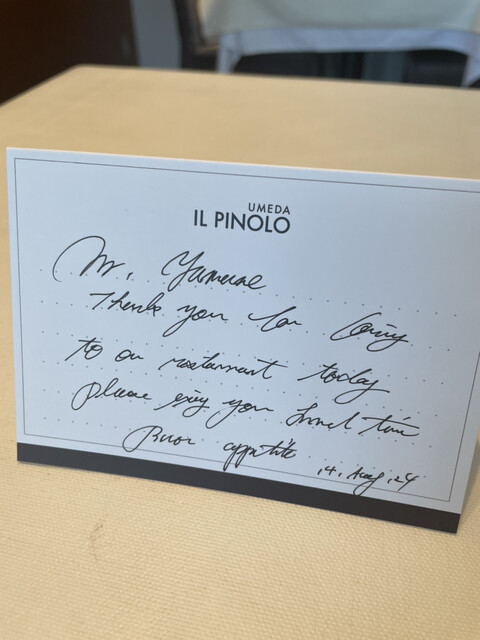 UMEDA
IL PINOLO
Mr.
Thank you for coming
to our restaurant today
please enjoy your lunch time
Buon appetito
14, Aug, 24